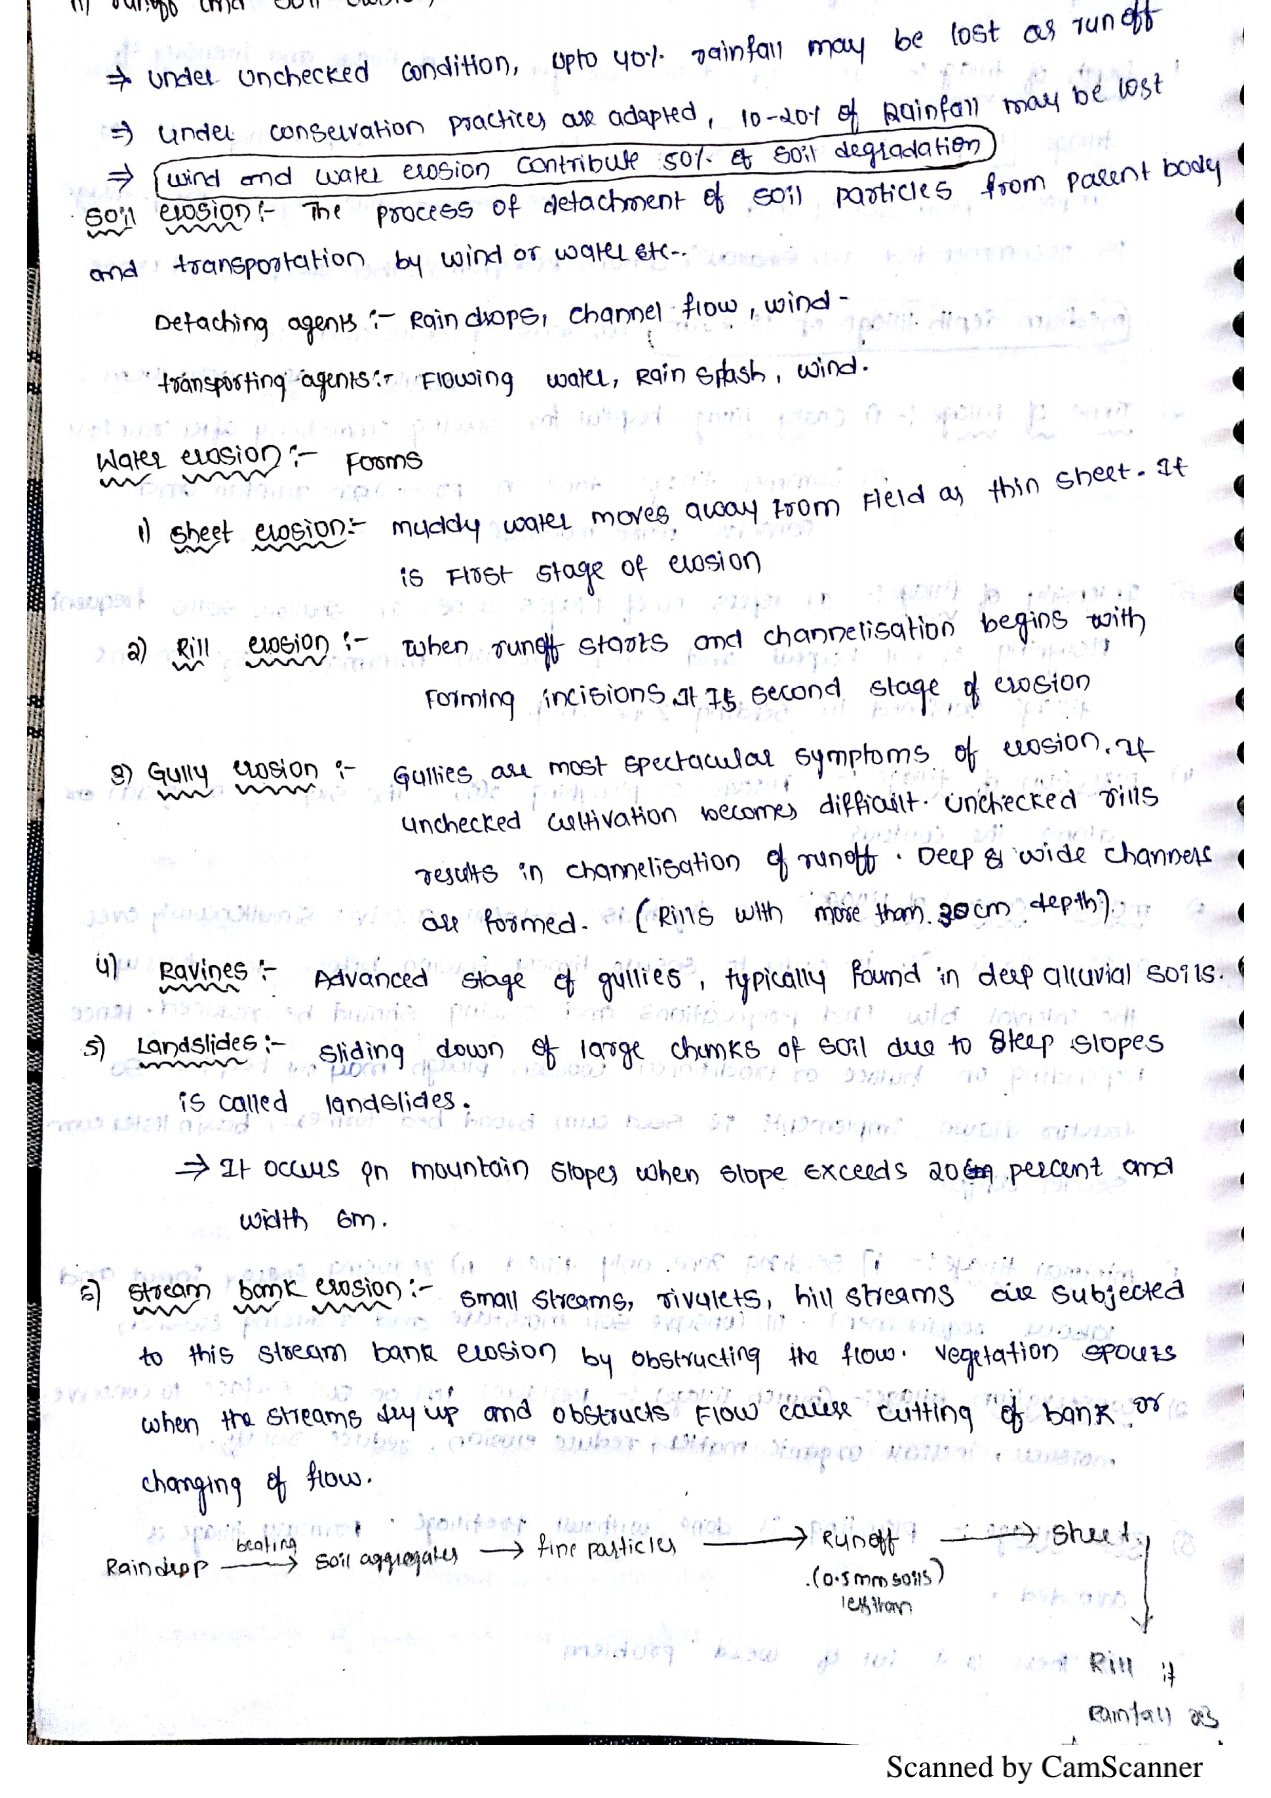 ⇒ under unchecked condition, upto 40% rainfall may be lost as runoff
⇒ under conservation practices are adapted, 10-20% of Rainfall may be lost
⇒ wind and water erosion contribute 50% of soil degradation
soil erosion:- The process of detachment of soil particles from parent body
and transportation by wind or water etc..
Detaching agents:- Rain drops, channel flow, wind -
transporting agents:- Flowing water, Rain splash, wind.
Water erosion:- Forms
1) sheet erosion:- muddy water moves away from field as thin sheet. It
is First stage of erosion
2) Rill erosion:- When runoff starts and channelisation begins with
forming incisions. It is second stage of erosion
3) Gully erosion:- Gullies are most spectacular symptoms of erosion. If
unchecked cultivation becomes difficult. unchecked rills
results in channelisation of runoff. Deep & wide channels
are formed. (Rills with more than 30cm depth).
4) Ravines:- Advanced stage of gullies, typically found in deep alluvial soils.
5) Landslides:- sliding down of large chunks of soil due to steep slopes
is called landslides.
⇒ It occurs on mountain slopes when slope exceeds 20 percent and
width 6m.
6) stream bank erosion:- small streams, rivulets, hill streams are subjected
to this stream bank erosion by obstructing the flow. vegetation spours
when the streams dry up and obstructs flow cause cutting of bank or
changing of flow.
Raindrop beating → soil aggregates → fine particles → Runoff → sheet
(0.5mm soils)
less than
Rill if
rainfall
Scanned by CamScanner